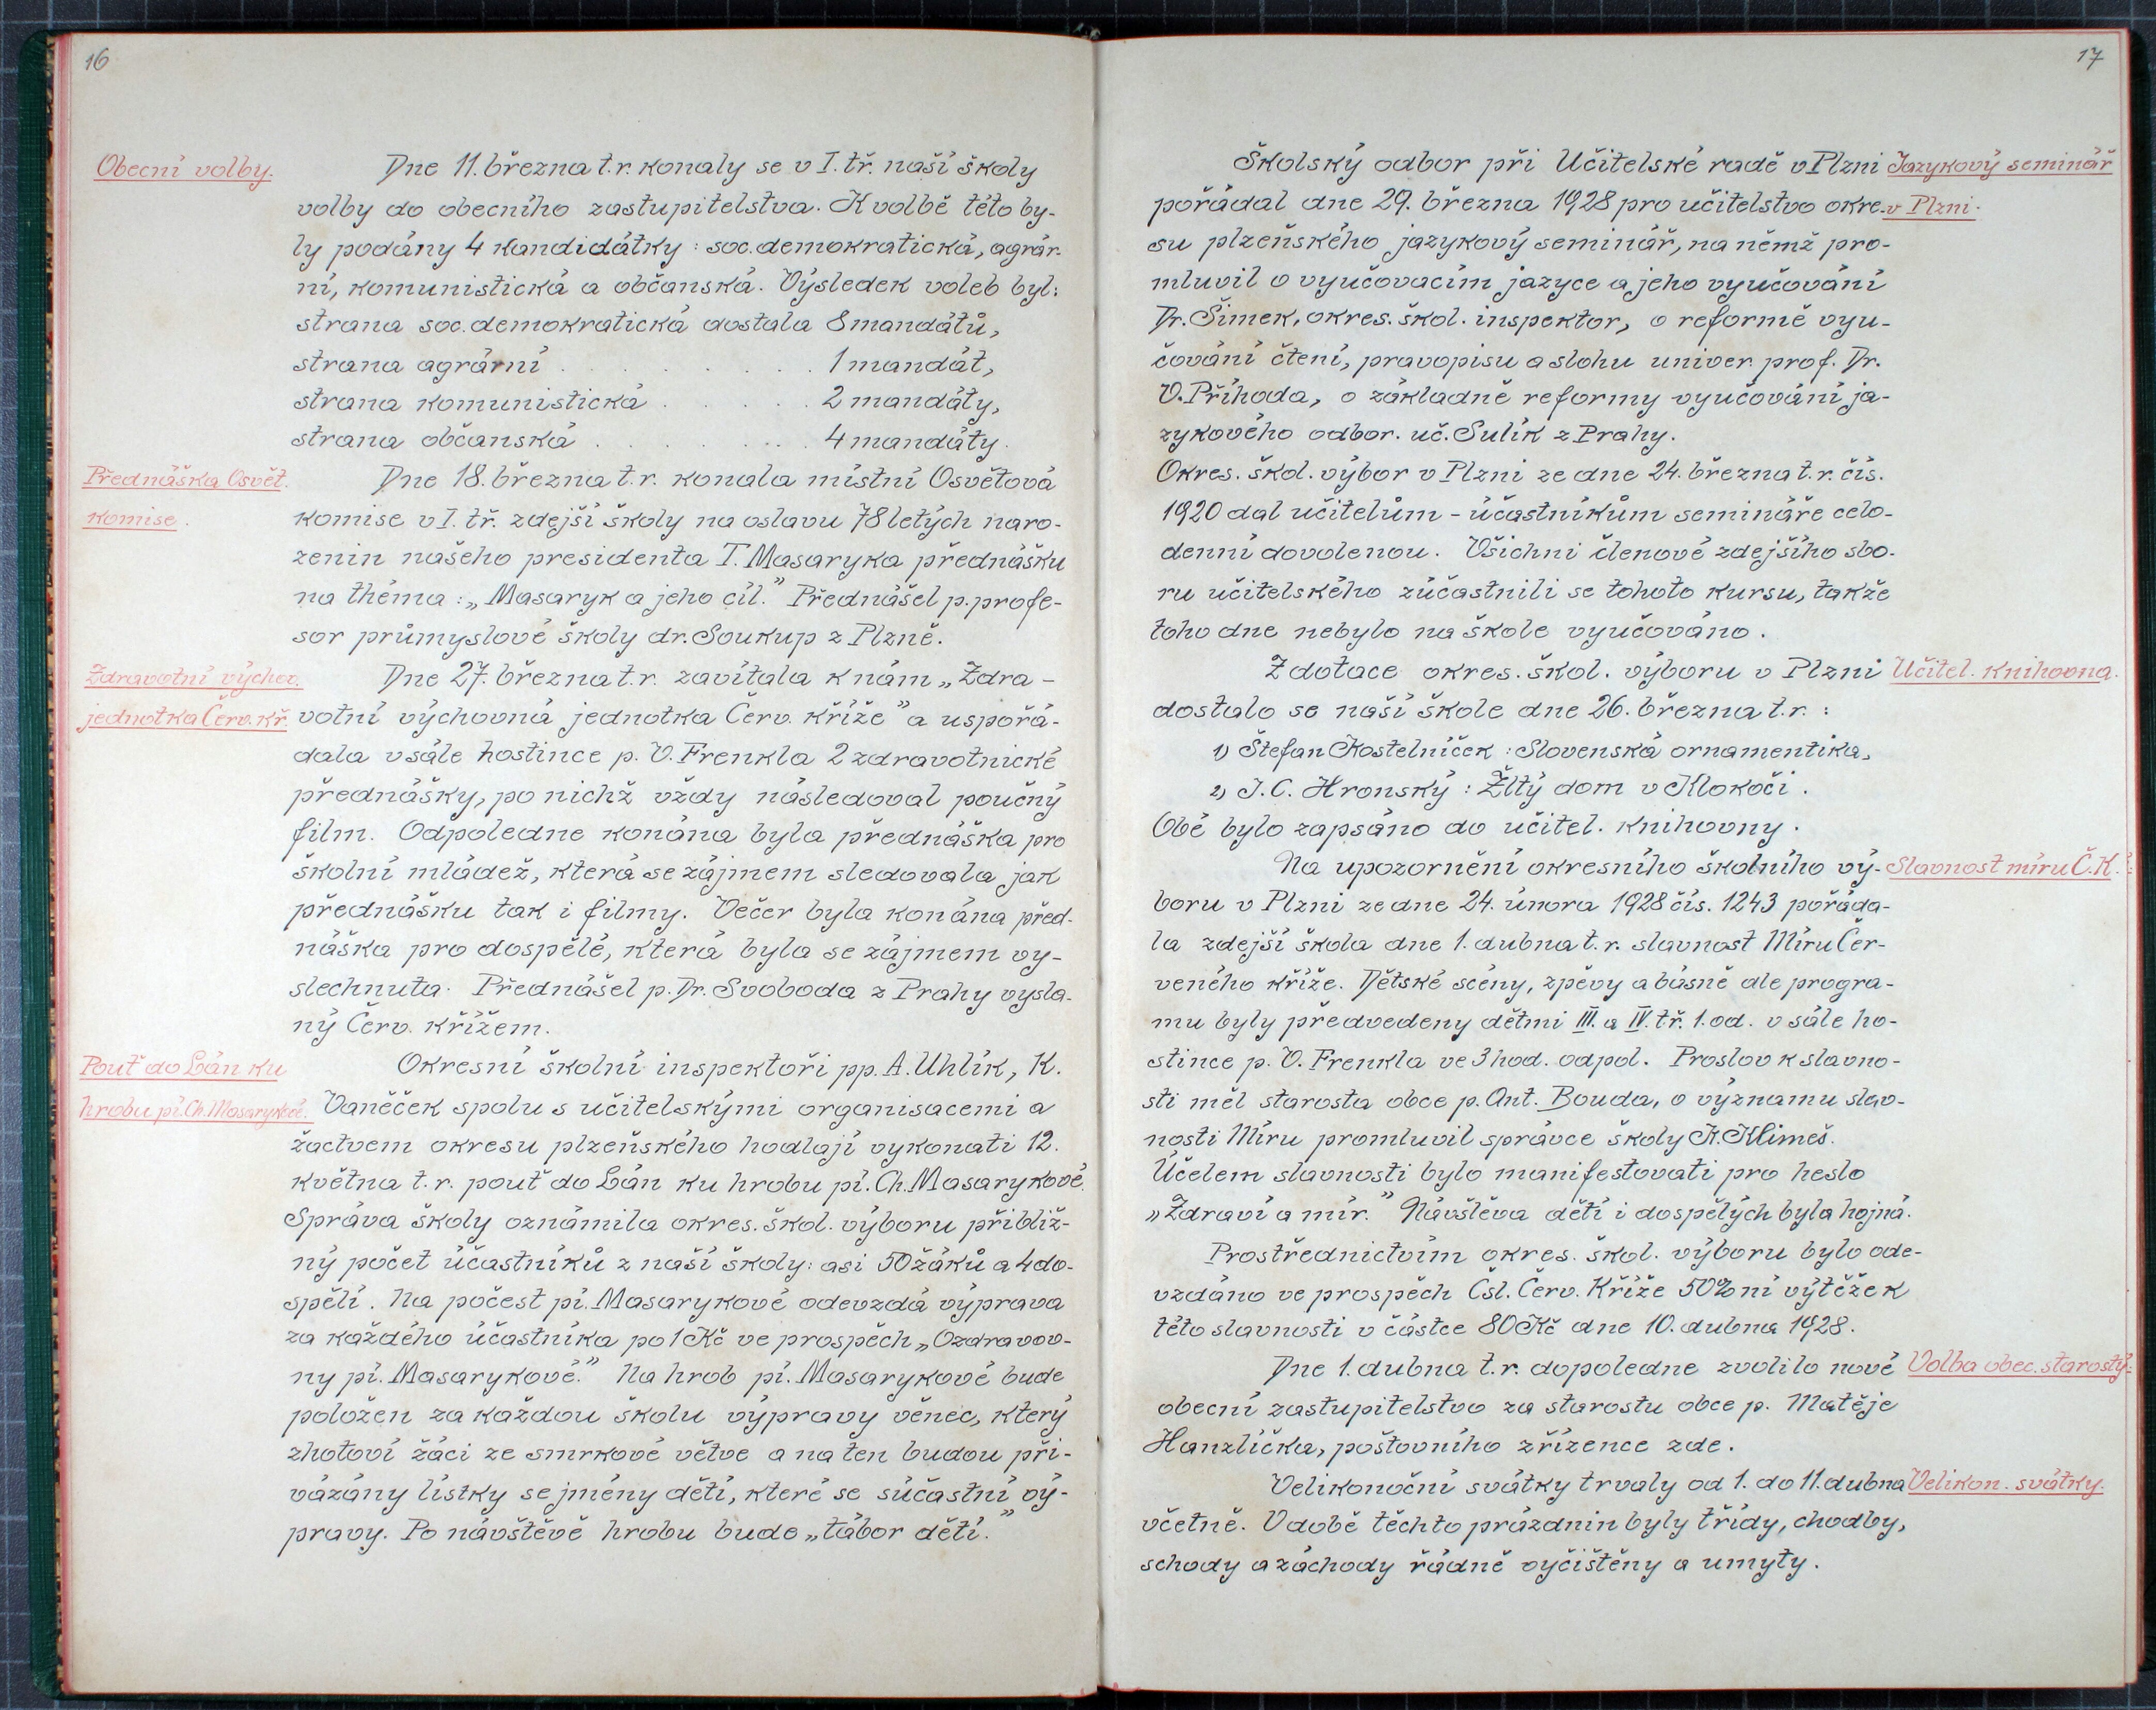 16
Obecní volby.
Dne 11. března t.r. konaly se v I. tř. naší školy
volby do obecního zastupitelstva. K volbě této by-
ly podány 4 kandidátky : soc. demokratická, agrár-
ní, komunistická a občanská. Výsledek voleb byl:
strana soc. demokratická dostala 8 mandátů,
strana agrární . . . . . . . 1 mandát,
strana komunistická . . . . . 2 mandáty,
strana občanská . . . . . . . 4 mandáty.
Přednáška Osvět.
komise.
Dne 18. března t.r. konala místní Osvětová
komise v I. tř. zdejší školy na oslavu 78letých naro-
zenin našeho presidenta T. Masaryka přednášku
na théma : „Masaryk a jeho cíl.” Přednášel p. profe-
sor průmyslové školy dr. Soukup z Plzně.
Zdravotní výchov.
jednotka Červ. kř.
Dne 27. března t.r. zavítala k nám „Zdra-
votní výchovná jednotka Červ. kříže” a uspořá-
dala v sále hostince p. V. Frenkla 2 zdravotnické
přednášky, po nichž vždy následoval poučný
film. Odpoledne konána byla přednáška pro
školní mládež, která se zájmem sledovala jak
přednášku tak i filmy. Večer byla konána před-
náška pro dospělé, která byla se zájmem vy-
slechnuta. Přednášel p. Dr. Svoboda z Prahy vysla-
ný Červ. křížem.
Pouť do Lán ku
hrobu pí. Ch. Masarykové.
Okresní školní inspektoři pp. A. Uhlík, K.
Vaněček spolu s učitelskými organisacemi a
žactvem okresu plzeňského hodlají vykonati 12.
května t.r. pouť do Lán ku hrobu pí. Ch. Masarykové.
Správa školy oznámila okres. škol. výboru přibliž-
ný počet účastníků z naší školy: asi 50 žáků a 4 do-
spělí. Na počest pí. Masarykové odevzdá výprava
za každého účastníka po 1 Kč ve prospěch „Ozdravov-
ny pí. Masarykové.” Na hrob pí. Masarykové bude
položen za každou školu výpravy věnec, který
zhotoví žáci ze smrkové větve a na ten budou při-
vázány lístky se jmény dětí, které se súčastní vý-
pravy. Po návštěvě hrobu bude „tábor dětí.”
17
Školský odbor při Učitelské radě v Plzni
Jazykový seminář
pořádal dne 29. března 1928 pro učitelstvo okre-
v Plzni.
su plzeňského jazykový seminář, na němž pro-
mluvil o vyučovacím jazyce a jeho vyučování
Dr. Šimek, okres. škol. inspektor, o reformě vyu-
čování čtení, pravopisu a slohu univer. prof. Dr.
V. Příhoda, o základně reformy vyučování ja-
zykového odbor. uč. Sulík z Prahy.
Okres. škol. výbor v Plzni ze dne 24. března t.r. čís.
1920 dal učitelům - účastníkům semináře celo-
denní dovolenou. Všichni členové zdejšího sbo-
ru učitelského zúčastnili se tohoto kursu, takže
toho dne nebylo na škole vyučováno.
Z dotace okres. škol. výboru v Plzni
Učitel. knihovna.
dostalo se naší škole dne 26. března t.r. :
1) Štefan Kostelníček : Slovenská ornamentika,
2) J. C. Hronský : Žltý dom v Klokoči.
Obé bylo zapsáno do učitel. knihovny.
Na upozornění okresního školního vý-
Slavnost míru Č.K.
boru v Plzni ze dne 24. února 1928 čís. 1243 pořáda-
la zdejší škola dne 1. dubna t.r. slavnost Míru Čer-
veného kříže. Dětské scény, zpěvy a básně dle progra-
mu byly předvedeny dětmi III. a IV. tř. 1. od. v sále ho-
stince p. V. Frenkla ve 3 hod. odpol. Proslov k slavno-
sti měl starosta obce p. Ant. Bouda, o významu slav-
nosti Míru promluvil správce školy K. Klimeš.
Účelem slavnosti bylo manifestovati pro heslo
„Zdraví a mír.” Návštěva dětí i dospělých byla hojná.
Prostřednictvím okres. škol. výboru bylo ode-
vzdáno ve prospěch Čsl. Červ. Kříže 50%ní výtěžek
této slavnosti v částce 80 Kč dne 10. dubna 1928.
Dne 1. dubna t.r. dopoledne zvolilo nové
Volba obec. starosty.
obecní zastupitelstvo za starostu obce p. Matěje
Hanzlíčka, poštovního zřízence zde.
Velikonoční svátky trvaly od 1. do 11. dubna
Velikon. svátky.
včetně. V době těchto prázdnin byly třídy, chodby,
schody a záchody řádně vyčištěny a umyty.